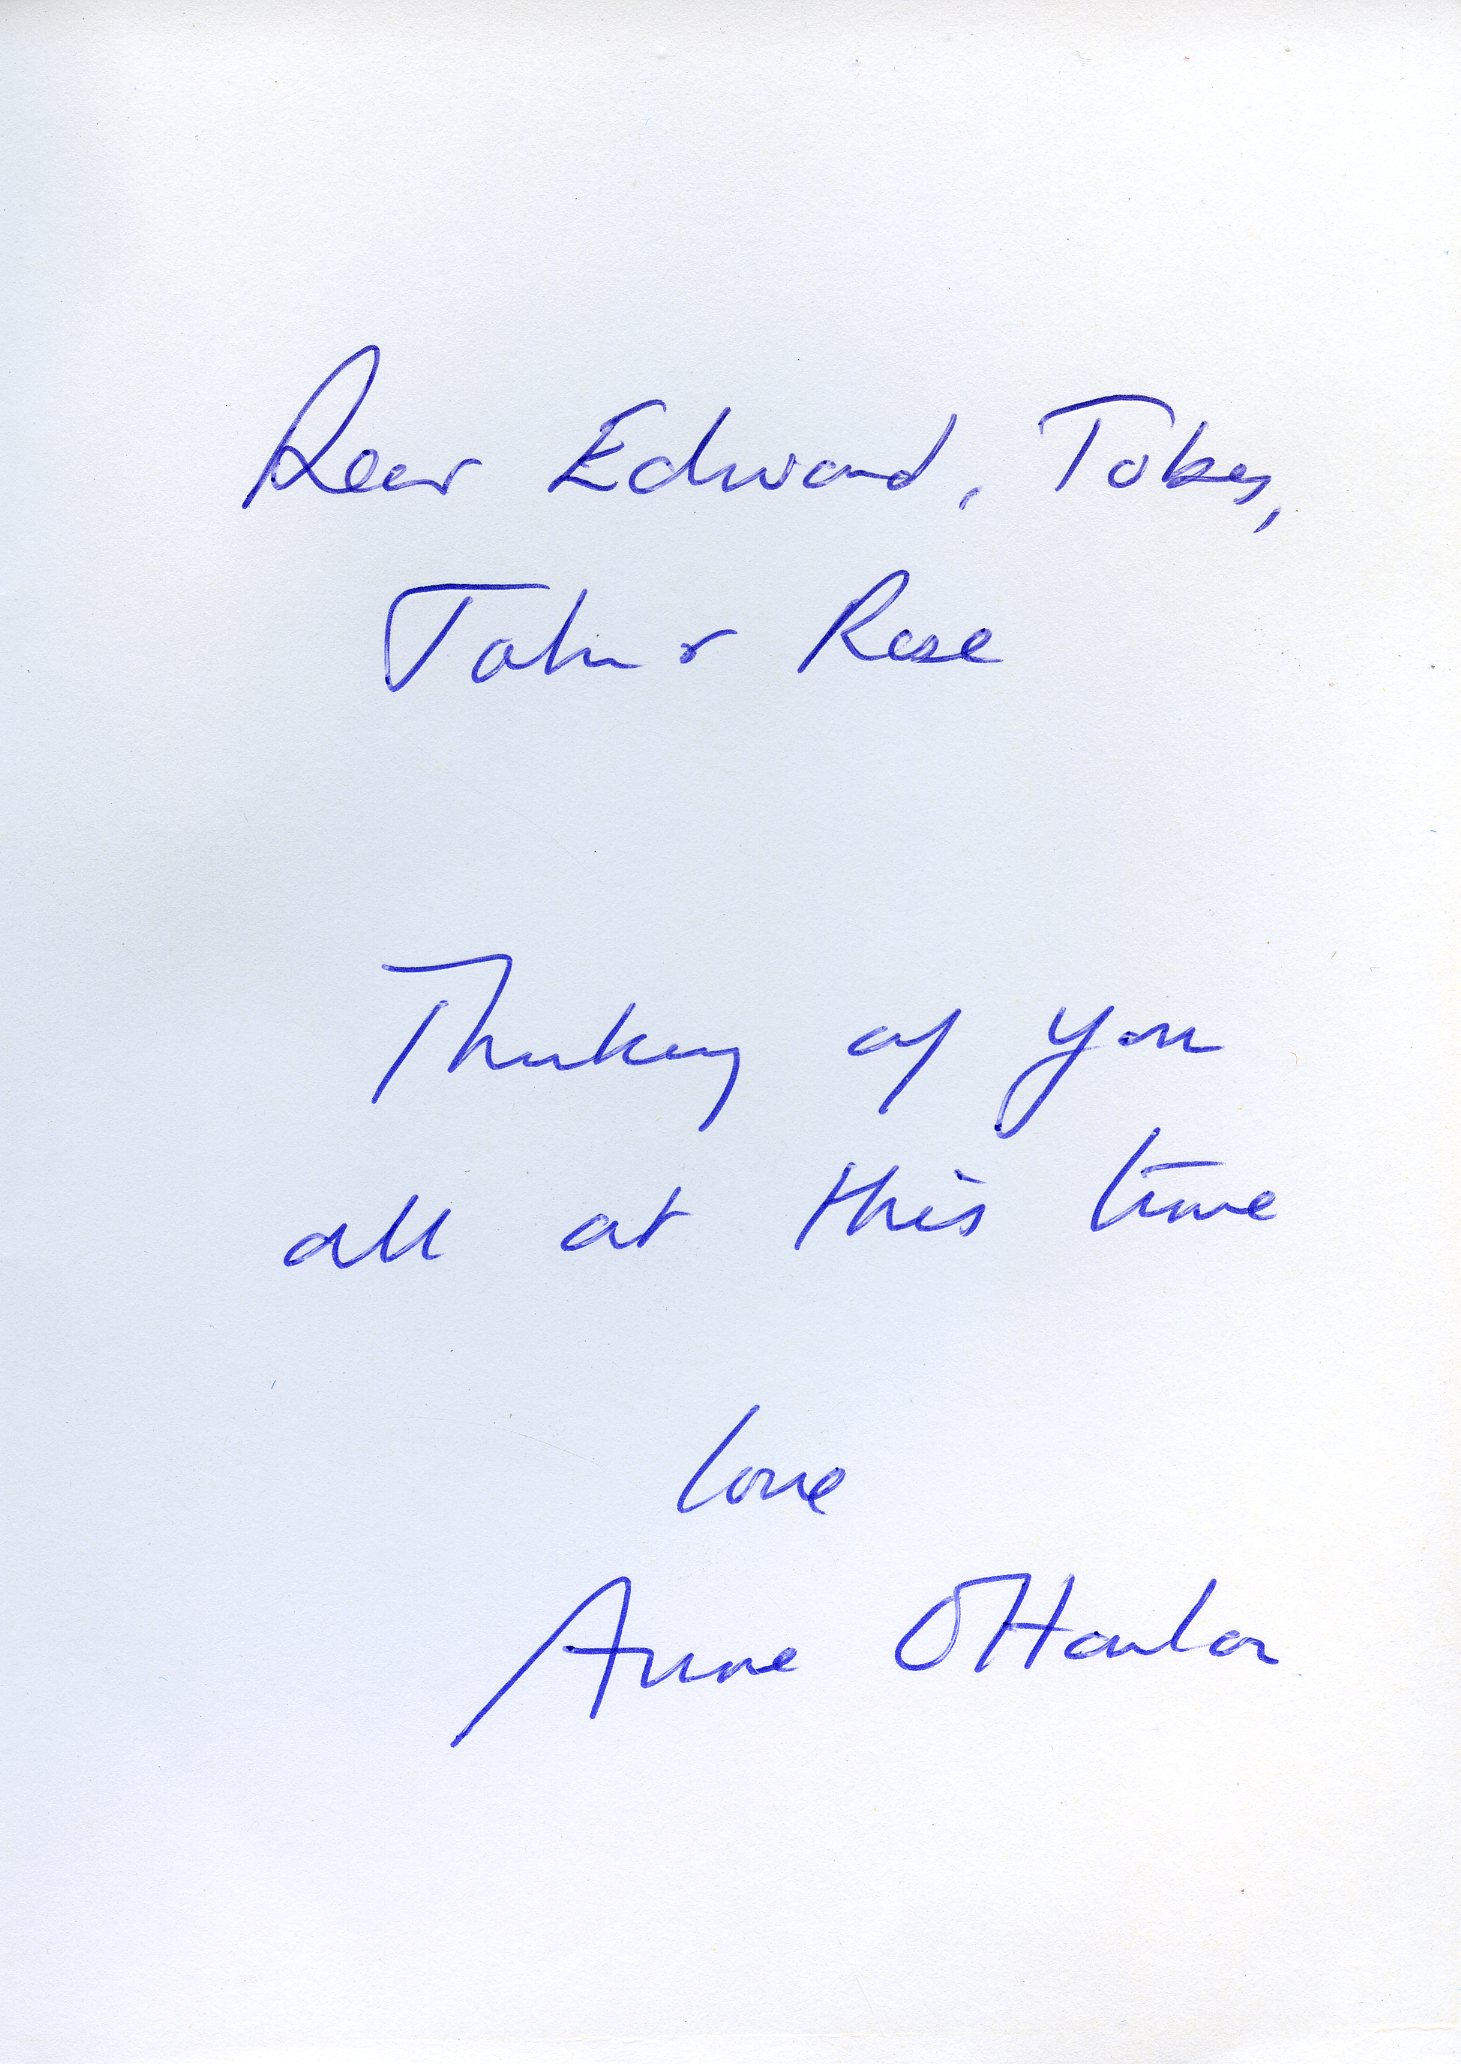 Dear Edward, Toby,
John & Rose
Thinking of you
all at this time
love
Anne O'Hanlon